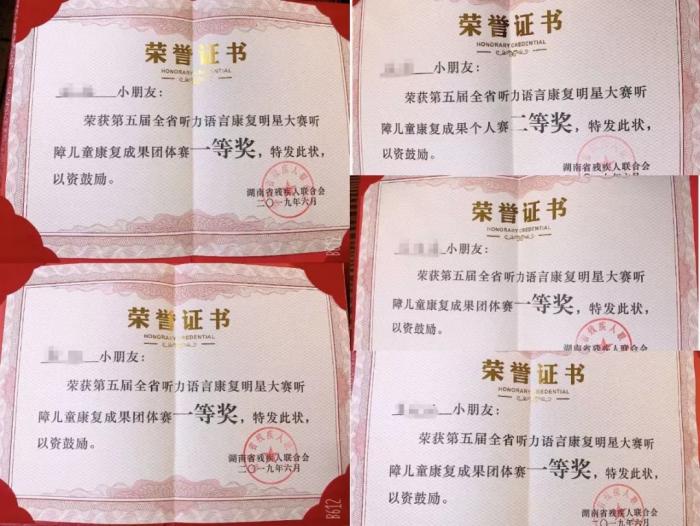 荣誉证书
HONORARY CREDENTIAL
小朋友：
荣获第五届全省听力语言康复明星大赛听
障儿童康复成果团体赛一等奖，特发此状，
以资鼓励。
湖南省残疾人联合会
二〇一九年六月
荣誉证书
HONORARY CREDENTIAL
小朋友：
荣获第五届全省听力语言康复明星大赛听
障儿童康复成果个人赛二等奖，特发此状，
以资鼓励。
湖南省残疾人联合会
荣誉证书
HONORARY CREDENTIAL
小朋友：
荣获第五届全省听力语言康复明星大赛听
障儿童康复成果团体赛一等奖，特发此状，
以资鼓励。
湖南省残疾人联合会
荣誉证书
HONORARY CREDENTIAL
小朋友：
荣获第五届全省听力语言康复明星大赛听
障儿童康复成果团体赛一等奖，特发此状，
以资鼓励。
湖南省残疾人联合会
二〇一九年六月
B612
荣誉证书
HONORARY CREDENTIAL
小朋友：
荣获第五届全省听力语言康复明星大赛听
障儿童康复成果团体赛一等奖，特发此状，
以资鼓励。
湖南省残疾人联合会
二〇一九年六月